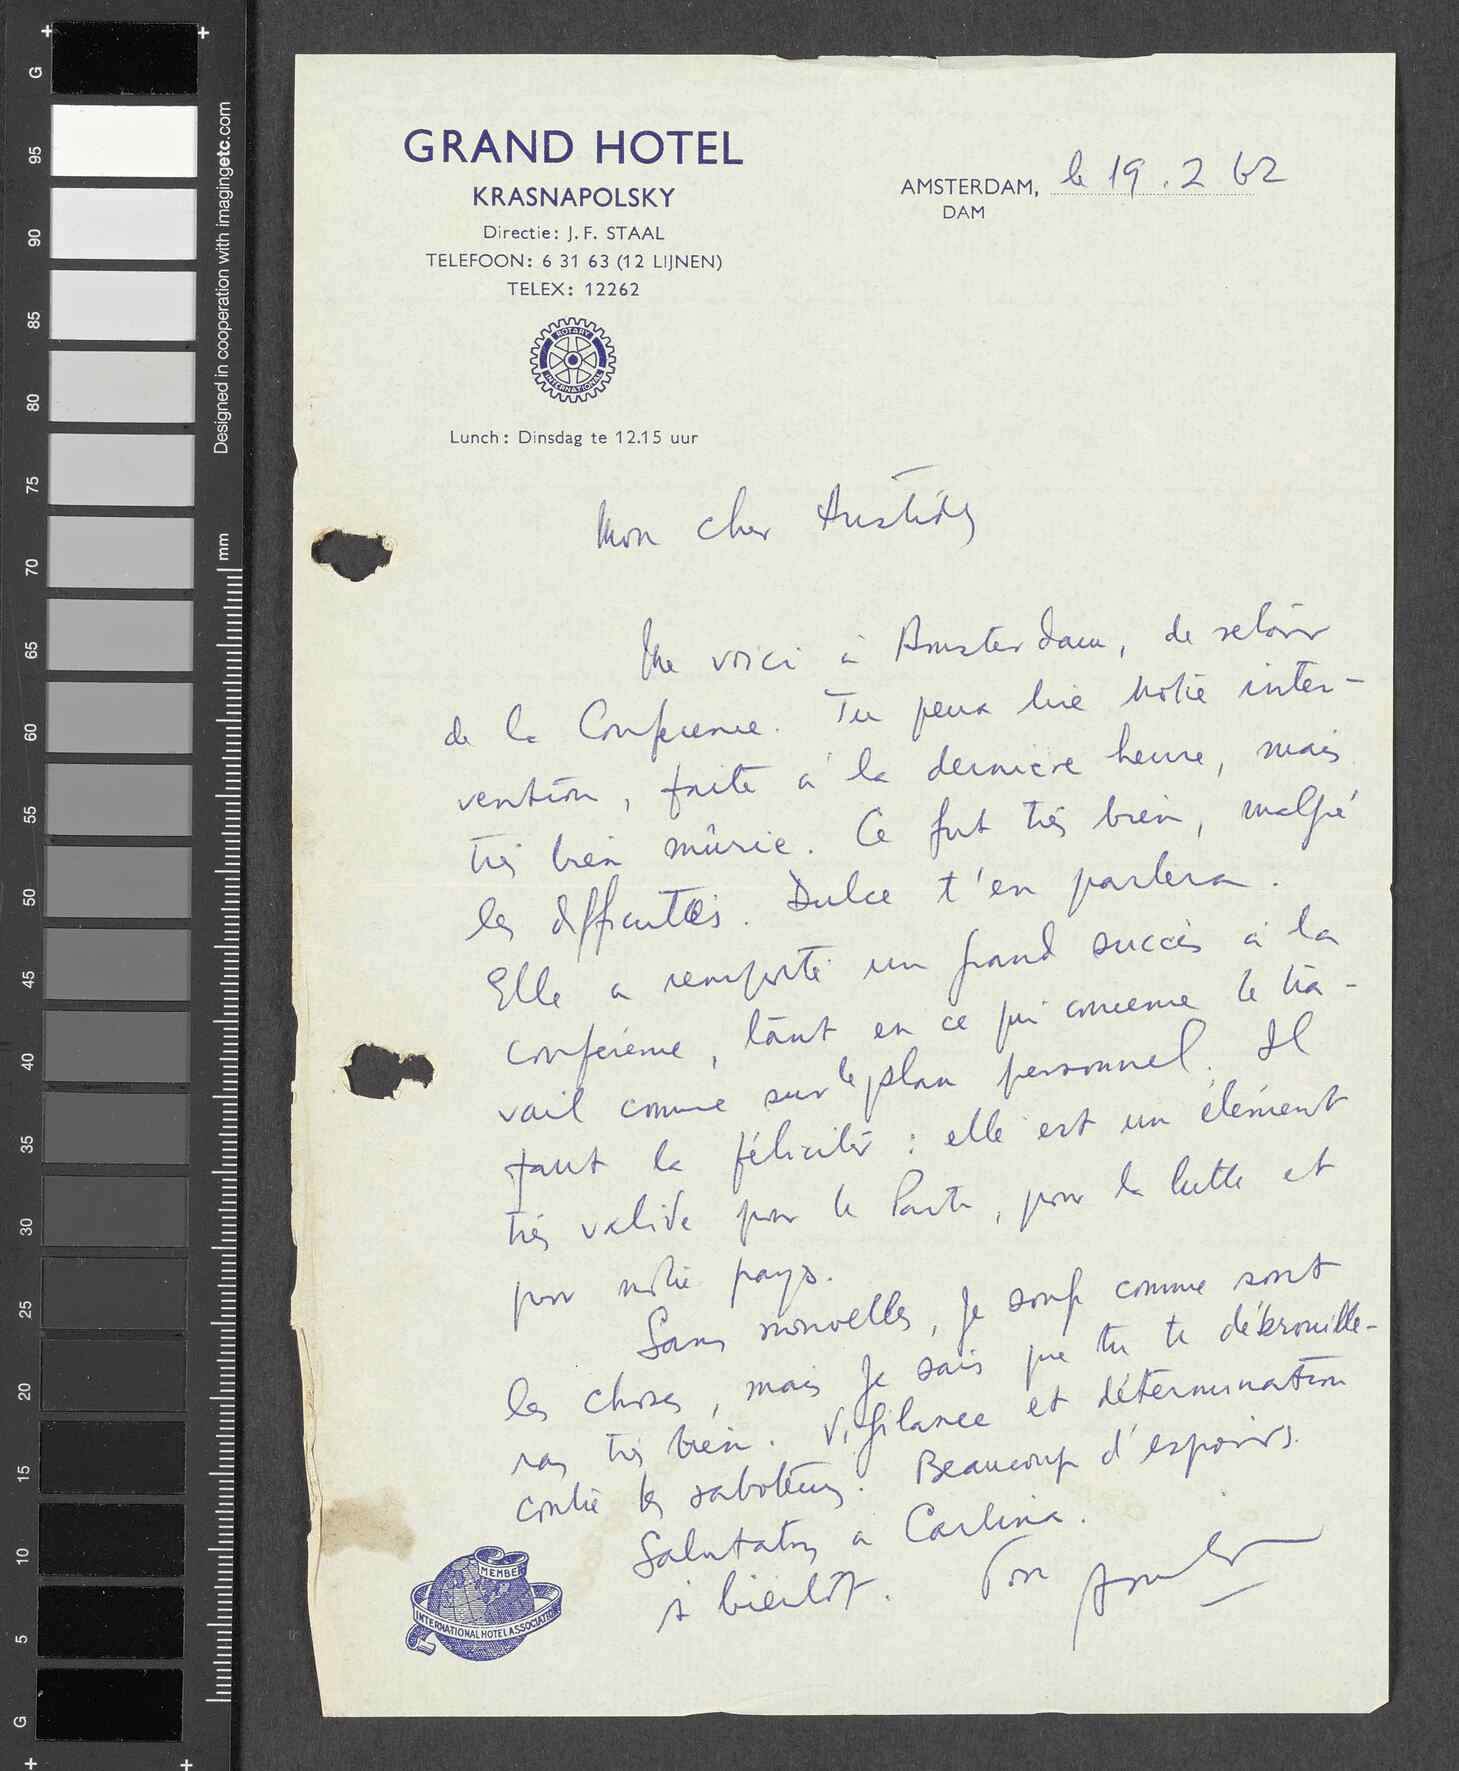 GRAND HOTEL
KRASNAPOLSKY
Directie: J. F. STAAL
TELEFOON: 6 31 63 (12 LIJNEN)
TELEX: 12262
ROTARY
INTERNATIONAL
Lunch: Dinsdag te 12.15 uur
AMSTERDAM, le 19.2 62
DAM
Mon cher Aristides
Me voici à Amsterdam, de retour
de la Conférence. Tu peux lire notre inter-
vention, faite à la dernière heure, mais
très bien mûrie. Ce fut très bien, malgré
les difficultés. Dulce t'en parlera.
Elle a remporté un grand succès à la
conférence, tant en ce qui concerne le tra-
vail comme sur le plan personnel. Il
faut la féliciter : elle est un élément
très valide pour le Parti, pour la lutte et
pour notre pays.
Sans nouvelles, je songe comme sont
les choses, mais je sais que tu te débrouille-
ras très bien. Vigilance et détermination
contre les saboteurs. Beaucoup d'espoirs.
Salutations à Carlina.
à bientôt. Ton
MEMBER
INTERNATIONAL HOTEL ASSOCIATION
G
95
90
85
80
75
70
65
60
55
50
45
40
35
30
25
20
15
10
5
G
Designed in cooperation with imagingetc.com
mm